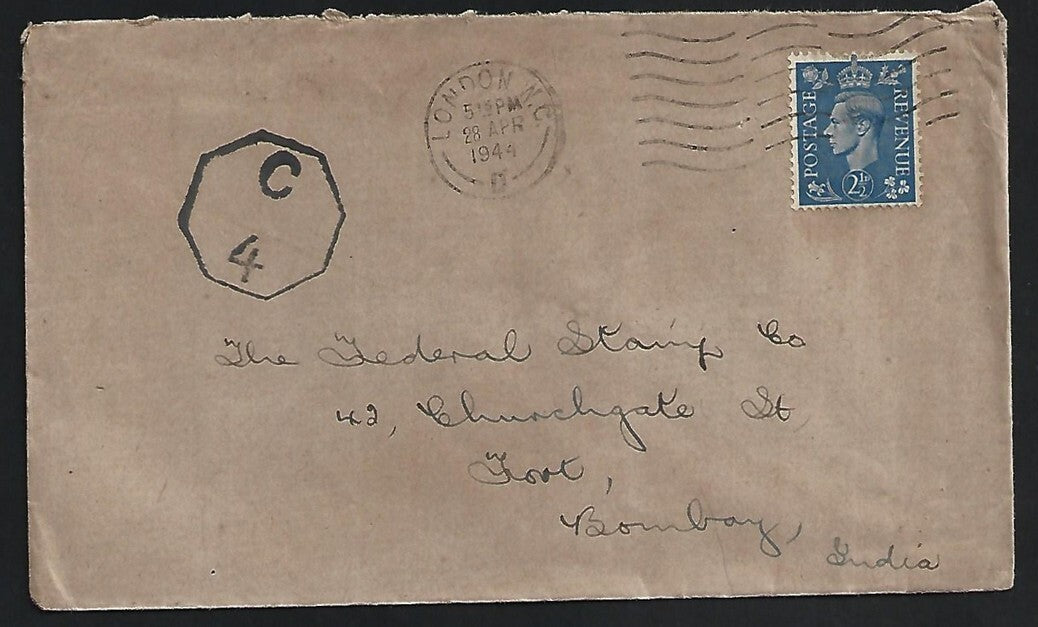 LONDON N.C
5 15 PM
28 APR
1944
POSTAGE
REVENUE
2½D
C
4
The Federal Stamp Co
42, Churchgate St
Fort,
Bombay,
India